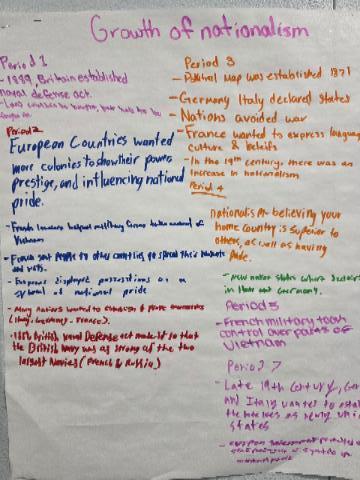 Growth of nationalism
Period 1
- 1889, Britain established
naval defense act.
Period 2
European Countries wanted
more colonies to show their power,
prestige, and influencing national
pride.
- French
military
control of
Vietnam
- French sent people to other countries, to spread their
and
- Europeans displayed possessions as a
symbol of national pride
- Many Nations wanted to establish
(Italy, Germany, France).
- 1889 British Naval Defense act made it so that
the British Navy was as strong of the two
largest Navies (French & Russia)
Period 3
- Political Map was established 1871
- Germany Italy declared States
- Nations avoided war
- France wanted to express language
culture & beliefs
- In the 19th century, there was an
increase in nationalism
Period 4
nationalism believing your
home country is superior to
others, as well as having
pride.
- New nation states where
in Italy and Germany.
Period 5
- French military took
control over parts of
Vietnam
Period 7
- Late 19th century,
and Italy wanted to
as newly
states